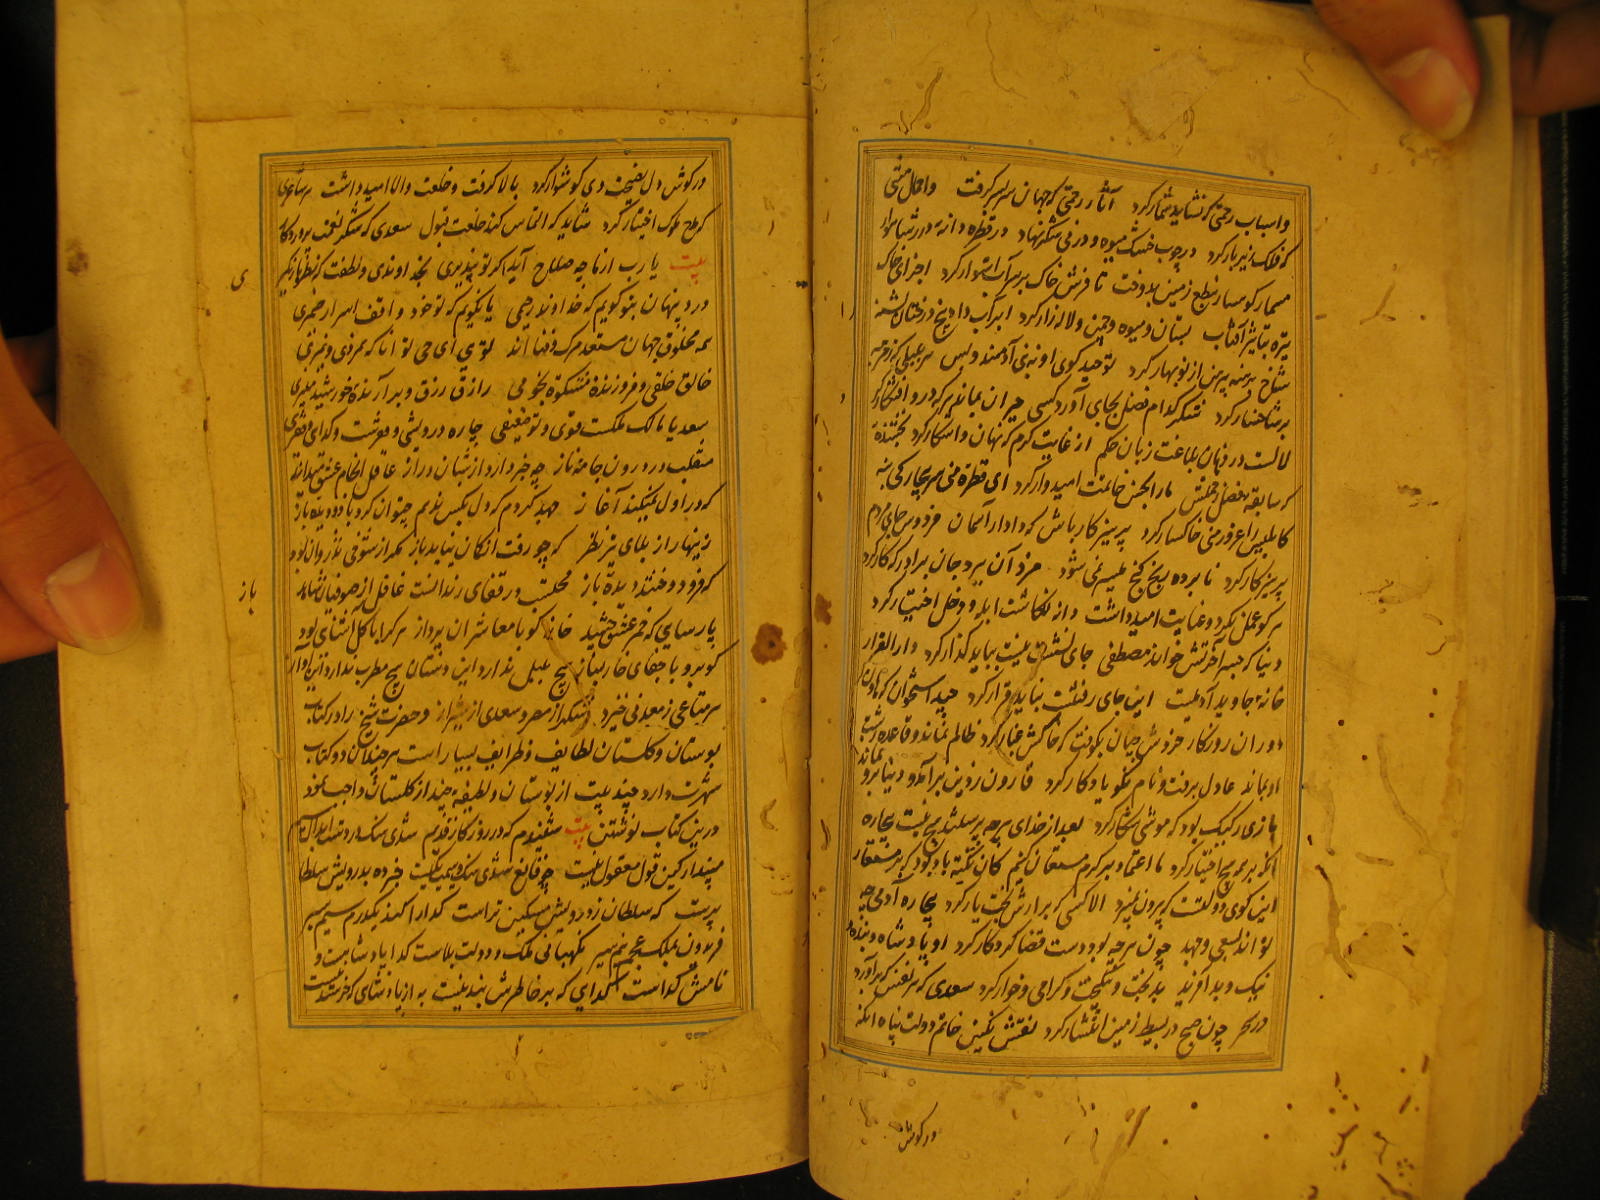 و اسباب رحمتی که نشاید شمار کرد آثار رحمتی که جهان سر بسر گرفت و احمال منتی
که فلک زیر بار کرد در چوب خشک میوه و در نی شکر نهاد در قطره دانهٔ درر شاهوار
مسمار کوهسار بنطع زمین بدوخت تا فرش خاک بر سر آب استوار کرد اجزای خاک
تیره بتاثیر آفتاب بستان و میوه و چمن و لاله زار کرد ابر آب داد بیخ درختان تشنه
شاخ برهنه پیرهن از نوبهار کرد توحید گوی او نه بنی آدمند و بس هر بلبلی که زمزمه
بر شاخسار کرد شکر کدام فضل بجای آورد کسی حیران بماند هر که درو افتکار کرد
لالست در دهان بلاغت زبان حکم از غایت کرم که نهان و اشکار کرد بخشندهٔ
که سابقه فضل رحمتش ما را بحسن خاتمت امیدوار کرد ای قطره منی سر بیچارگی بنه
کابلیس را غرور منی خاکسار کرد پرهیزکار باش که دادار آسمان فردوس جای مردم
پرهیزکار کرد نابرده رنج گنج میسر نمی شود مزد آن برد جان برادر که کار کرد
هر کو عمل نکرد و عنایت امید داشت دانه نکاشت ابله و دخل اختیار کرد
دنیا که جسر آخرتش خواند مصطفی جای نشست نیست بباید گذار کرد دار القرار
خانه جاوید آدمیست این جای رفتنست نباید قرار کرد چند استخوان که هاون
دوران روزگار خردش چنان بکوفت که خاکش غبار کرد ظالم نماند و قاعده زشت
او بماند عادل برفت و نام نکو یادگار کرد قارون ز دین بر آمد و دنیا برو نماند
بازی رکیک بود که موشی شکار کرد بعد از خدای هر چه پرستند هیچ نیست بیچاره
آنکه بر همه هیچ اختیار کرد ما اعتماد بر کرم مستعان کنیم کان تکیه باد بود که بر مستعار
این گوی دولتست که بیرون نمیبرد الا کسی که در ازلش بخت یار کرد بیچاره آدمی چه
تواند بسعی و جهد چون هر چه بودست قضا کردگار کرد او پادشاه و بنده و
نیک و بد آفرید بدبخت و نیکبخت و گرامی و خوار کرد سعدی که هر نفس که برآورد
در سحر چون صبح در بسیط زمین انتشار کرد نقش نگین خاتم دولت پناه آنکه
در گوش
در گوش دل نصیحت وی گوشوار کرد بالا گرفت و خلعت والا امید داشت هر شاعری
که مدح ملوک اختیار کرد شاید که التماس کند خلعت قبول سعدی که شکر نعمت پروردگار
بیت یا رب از ما چه صلاح آید اگر تو نپذیری بخداوندی و لطفت که نظر باز نگیری
درد پنهان بتو گویم که خداوند رحیمی یا نگویم که تو خود واقف اسرار ضمیری
همه مخلوق جهان مستعد مرگ و فنااند تویی آن حی توانا که نمردی و نمیری
خالق خلقی و فروزنده مشکوة نجومی رازق رزق و برآرندهٔ خورشید منیری
سعدیا مالک ملکست قوی و تو ضعیفی چاره درویشی و فقرست و گدائی و فقیری
متقلب درون جامه ناز چه خبر دارد از شبان دراز عاقل انجام عشق میداند
که در اول نمیکند آغاز جهد کردم که دل بکس ندهم چتوان کرد با دو دیده باز
زینهار از بلای تیر نظر که چو رفت از کمان نیاید باز مگر از شوخی تذروان بود
که فرو دوختند دیدهٔ باز محتسب در قفای رندانست غافل از صوفیان شاهد باز
پارسایی که خمر عشق چشید خانه گو با معاشران پرداز هر کرا با گل آشنائی بود
گو برو با جفای خار بساز هیچ بلبل ندارد این دستان هیچ مطرب ندارد این آواز
هر متاعی ز معدنی خیزد شکر از مصر و سعدی از شیراز و حضرت شیخ را در کتاب
بوستان و گلستان لطایف و ظرایف بسیار است هر چند آن دو کتاب
شهرت دارد چند بیت از بوستان و لطیفه چند از گلستان واجب نمود
درین کتاب نوشتن بیت شنیدم که در روزگار قدیم شدی سنگ در دست ابدال سیم
مپندار کین قول معقول نیست چو قانع شدی سنگ و سیمت یکیست خبر ده بدرویش سلطان
پرست که سلطان ز درویش مسکین ترست گدا را کند یک درم سیم سیر
فریدون بملک عجم نیم سیر نگهبانی ملک و دولت بلاست گدا پادشاست و
نامش گداست گدایی که بر خاطرش بند نیست به از پادشائی که خرسند نیست
ی
باز